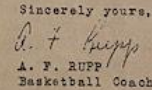 Sincerely yours,
A F Rupp
A. F. RUPP
Basketball Coach